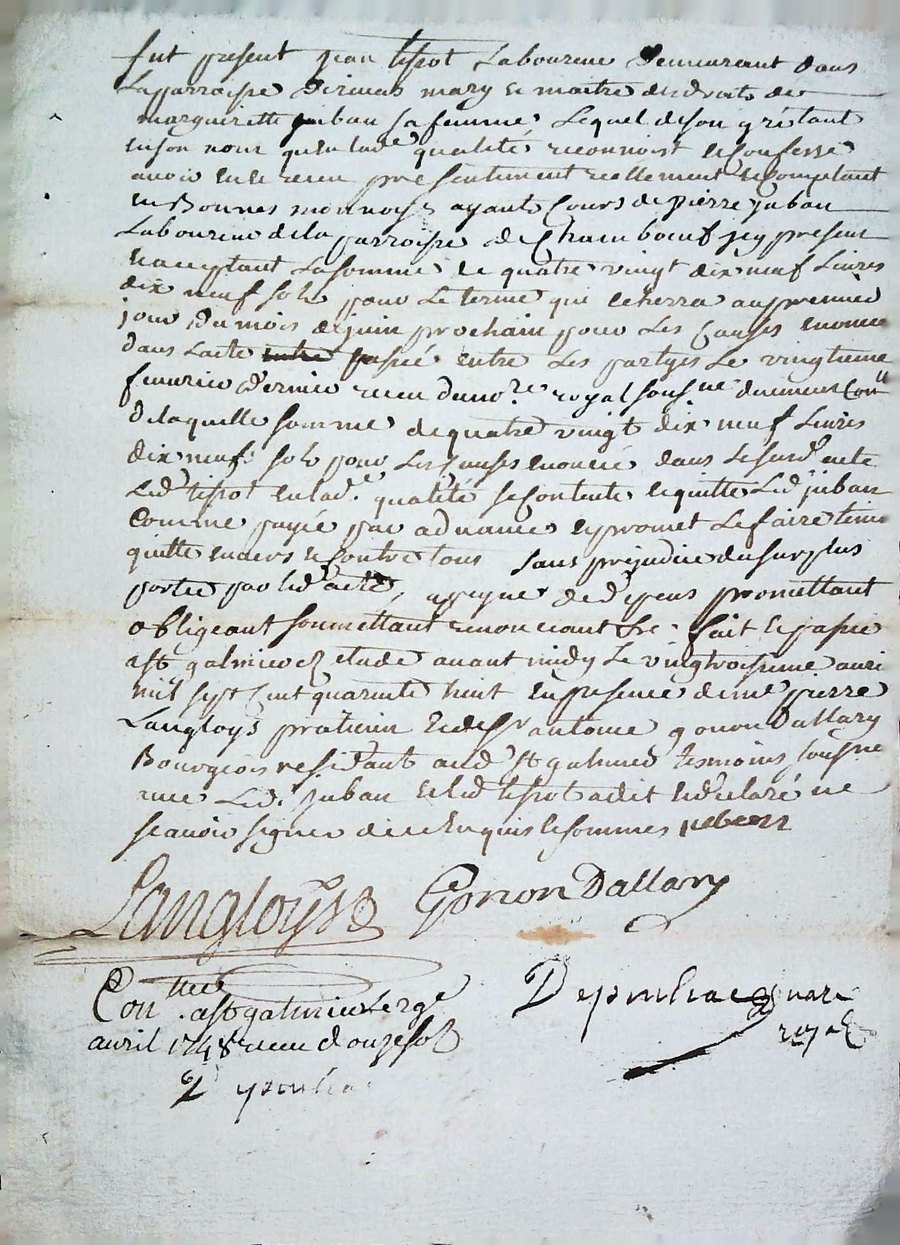 fut présent jean tissot Laboureur demeurant dans
La parroisse de rivas mary et maitre des droits de
margueritte juban sa femme Lequel de son gré tant
en son nom qu'en lad.e qualité reconnoist et confesse
avoir eu et receu presentement reellement et comptant
en Bonnes monnoyes ayants Cours de pierre juban
Laboureur de la parroisse de Chambœuf jcy present
et acceptant La somme de quatre vingt dix neuf Livres
dix neuf sols pour Le terme qui echerra au premier
jour du mois de juin prochain pour Les Causes enoncées
dans Lacte passé entre Les partyes Le vingtieme
feuvrier dernier receu du no.re royal sous.né duement Con.llé
de laquelle somme de quatre vingt dix neuf Livres
dix neuf sols pour Les causes enoncé dans Le susd. acte
Led. tissot en lad.e qualité se Contente et quitte Led. juban
Comme payée par advance et promet Le faire tenir
quitte envers et contre tous sans préjudice du surplus
portée par led. acte, a peyne de d'epens promettant
obligeant soumettant renonceant &c. fait et passé
a st galmier ez etude avant midy Le vingtroisieme avril
mil sept Cent quarante huit en presence de me pierre
Langloys praticien et de sr antoine gonon Dallary
Bourgeois residant aud. st galmier temoins sousne
avec Led. juban et led. tissot a dit et declaré ne
scavoir signer de ce enquis et sommés
Langloys Gonon Dallary
Con.llé a st galmier Le 29e
avril 1748 receu douze sols
nore
royal